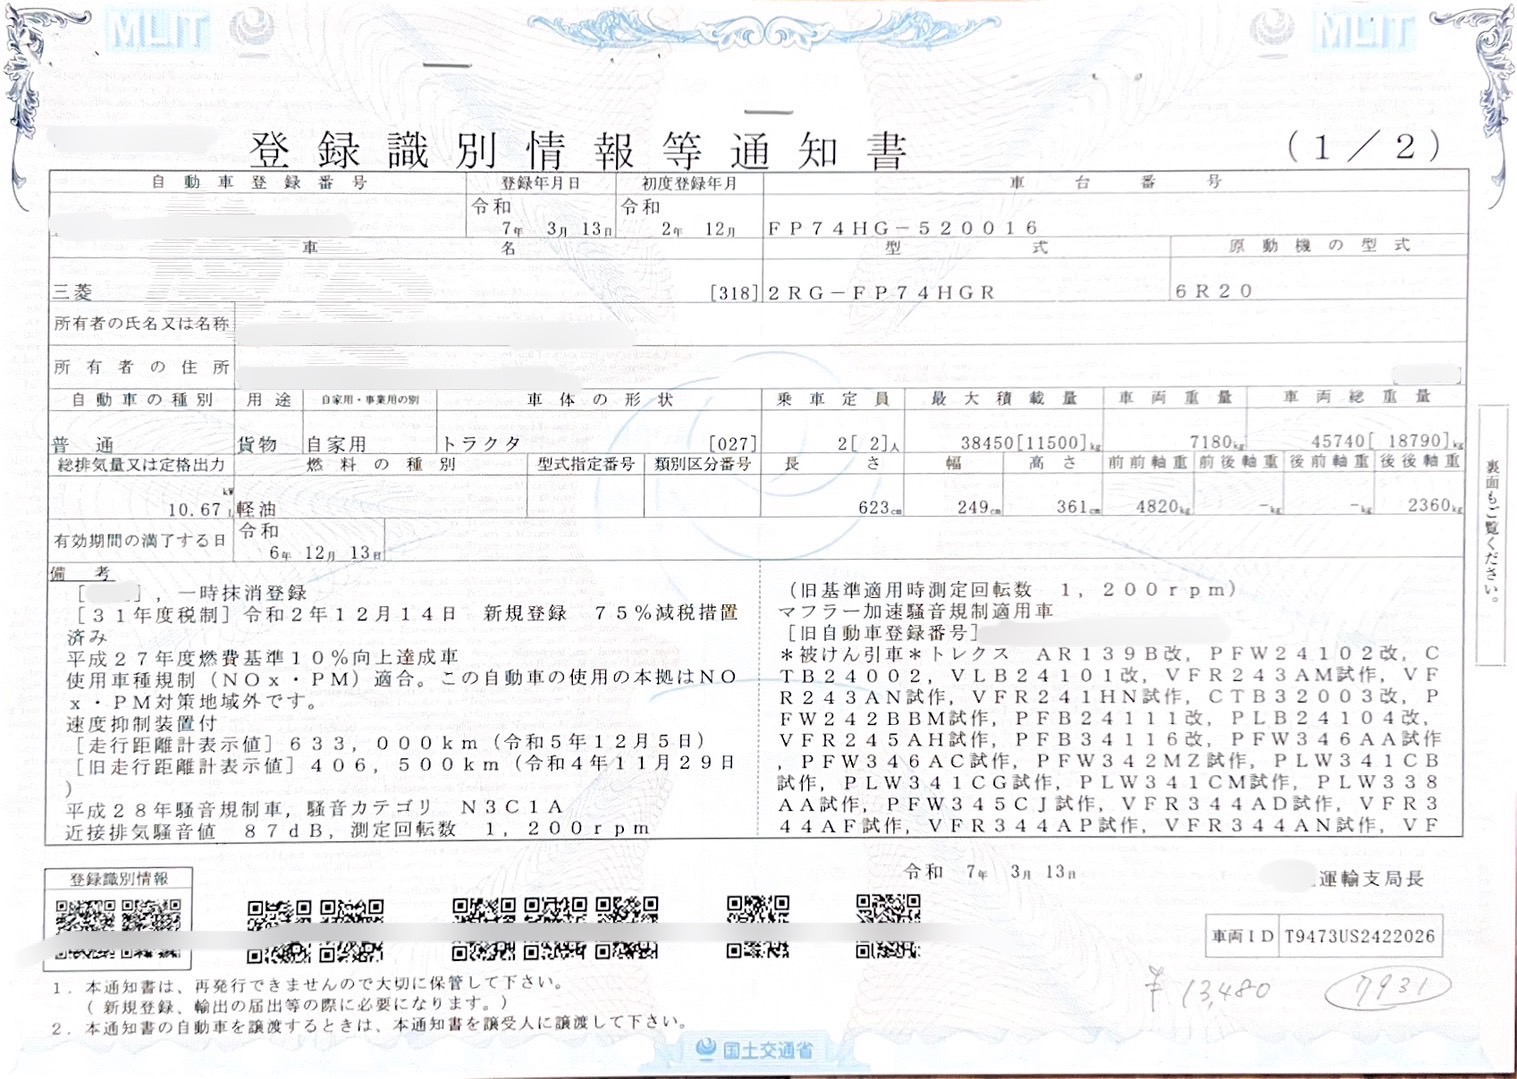 MLIT
MLIT
登録識別情報等通知書
(1/2)
自動車登録番号 登録年月日 初度登録年月 車台番号
令和 令和
7年 3月 13日 2年 12月 FP74HG-520016
車名 型式 原動機の型式
三菱 [318] 2RG-FP74HGR 6R20
所有者の氏名又は名称
所有者の住所
自動車の種別 用途 自家用・事業用の別 車体の形状 乗車定員 最大積載量 車両重量 車両総重量
普通 貨物 自家用 トラクタ [027] 2[ 2]人 38450[11500]kg 7180kg 45740[ 18790]kg
総排気量又は定格出力 燃料の種別 型式指定番号 類別区分番号 長さ 幅 高さ 前前軸重 前後軸重 後前軸重 後後軸重
kW
10.67 L 軽油 623cm 249cm 361cm 4820kg -kg -kg 2360kg
有効期間の満了する日 令和
6年 12月 13日
裏面もご覧ください。
備考
[ ],一時抹消登録
[31年度税制]令和2年12月14日 新規登録 75%減税措置
済み
平成27年度燃費基準10%向上達成車
使用車種規制(NOx・PM)適合。この自動車の使用の本拠はNO
x・PM対策地域外です。
速度抑制装置付
[走行距離計表示値]633,000km(令和5年12月5日)
[旧走行距離計表示値]406,500km(令和4年11月29日
)
平成28年騒音規制車,騒音カテゴリ N3C1A
近接排気騒音値 87dB,測定回転数 1,200rpm
(旧基準適用時測定回転数 1,200rpm)
マフラー加速騒音規制適用車
[旧自動車登録番号]
*被けん引車*トレクス AR139B改,PFW24102改,C
TB24002,VLB24101改,VFR243AM試作,VF
R243AN試作,VFR241HN試作,CTB32003改,P
FW242BBM試作,PFB24111改,PLB24104改,
VFR245AH試作,PFB34116改,PFW346AA試作
,PFW346AC試作,PFW342MZ試作,PLW341CB
試作,PLW341CG試作,PLW341CM試作,PLW338
AA試作,PFW345CJ試作,VFR344AD試作,VFR3
44AF試作,VFR344AP試作,VFR344AN試作,VF
令和 7年 3月 13日
運輸支局長
登録識別情報
車両ID T9473US2422026
¥13,480 7931
1.本通知書は、再発行できませんので大切に保管して下さい。
(新規登録、輸出の届出等の際に必要になります。)
2.本通知書の自動車を譲渡するときは、本通知書を譲受人に譲渡して下さい。
国土交通省